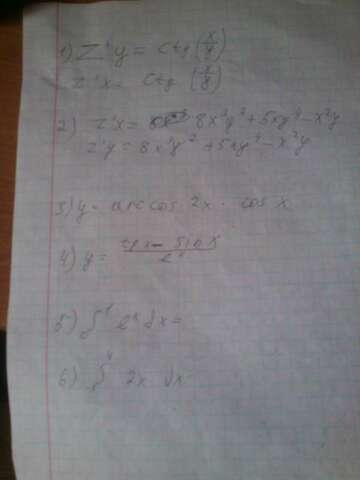 1) Z'y = ctg (x/y)
Z'x = ctg (x/y)
2) Z'x = 8x²y² + 5xy⁴ - x²y
Z'y = 8x²y² + 5xy⁴ - x²y
3) y = arccos 2x · cos x
4) y = - sin x
5) ∫ eˣ dx =
6) ∫ 2x dx